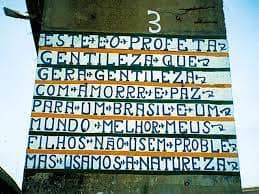 3
ESTE É O PROFETA
GENTILEZA QUE
GERA GENTILEZA
COM AMORRR E PAZ
PARA UM BRASIL E UM
MUNDO MELHOR MEUS
FILHOS NÃO USEM PROBLE
MAS USAMOS A NATUREZA